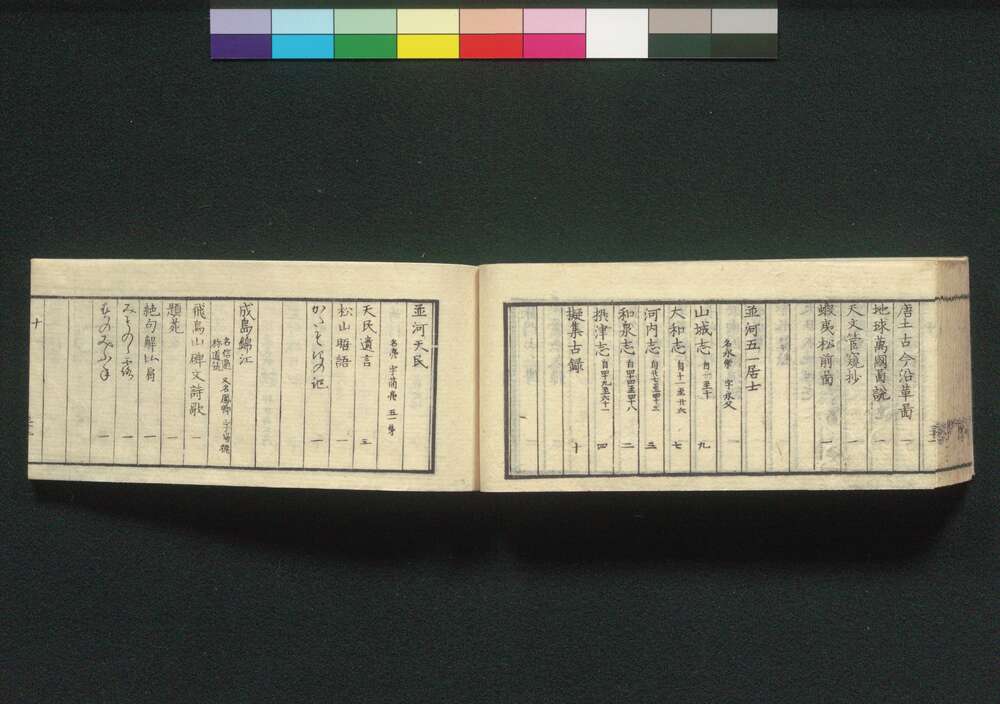 唐土古今沿革啚 一
地球萬國啚説 一
天文管窺抄 一
蝦夷松前啚 一
並河五一居士
名永 字永父
山城志 自一至十 九
大和志 自十一至廿六 七
河内志 自廿七至四十三 三
和泉志 自四十四至四十八 二
摂津志 自四十九至六十一 四
擬集古録 十
並河天民
名亮 字簡亮 五一弟
天民遺言 三
松山晤語 一
かたそぎの記 一
成島錦江
名信遍 又名鳳卿
飛鳥山碑文詩歌 一
題苑 一
絶句解 一
一
一
十